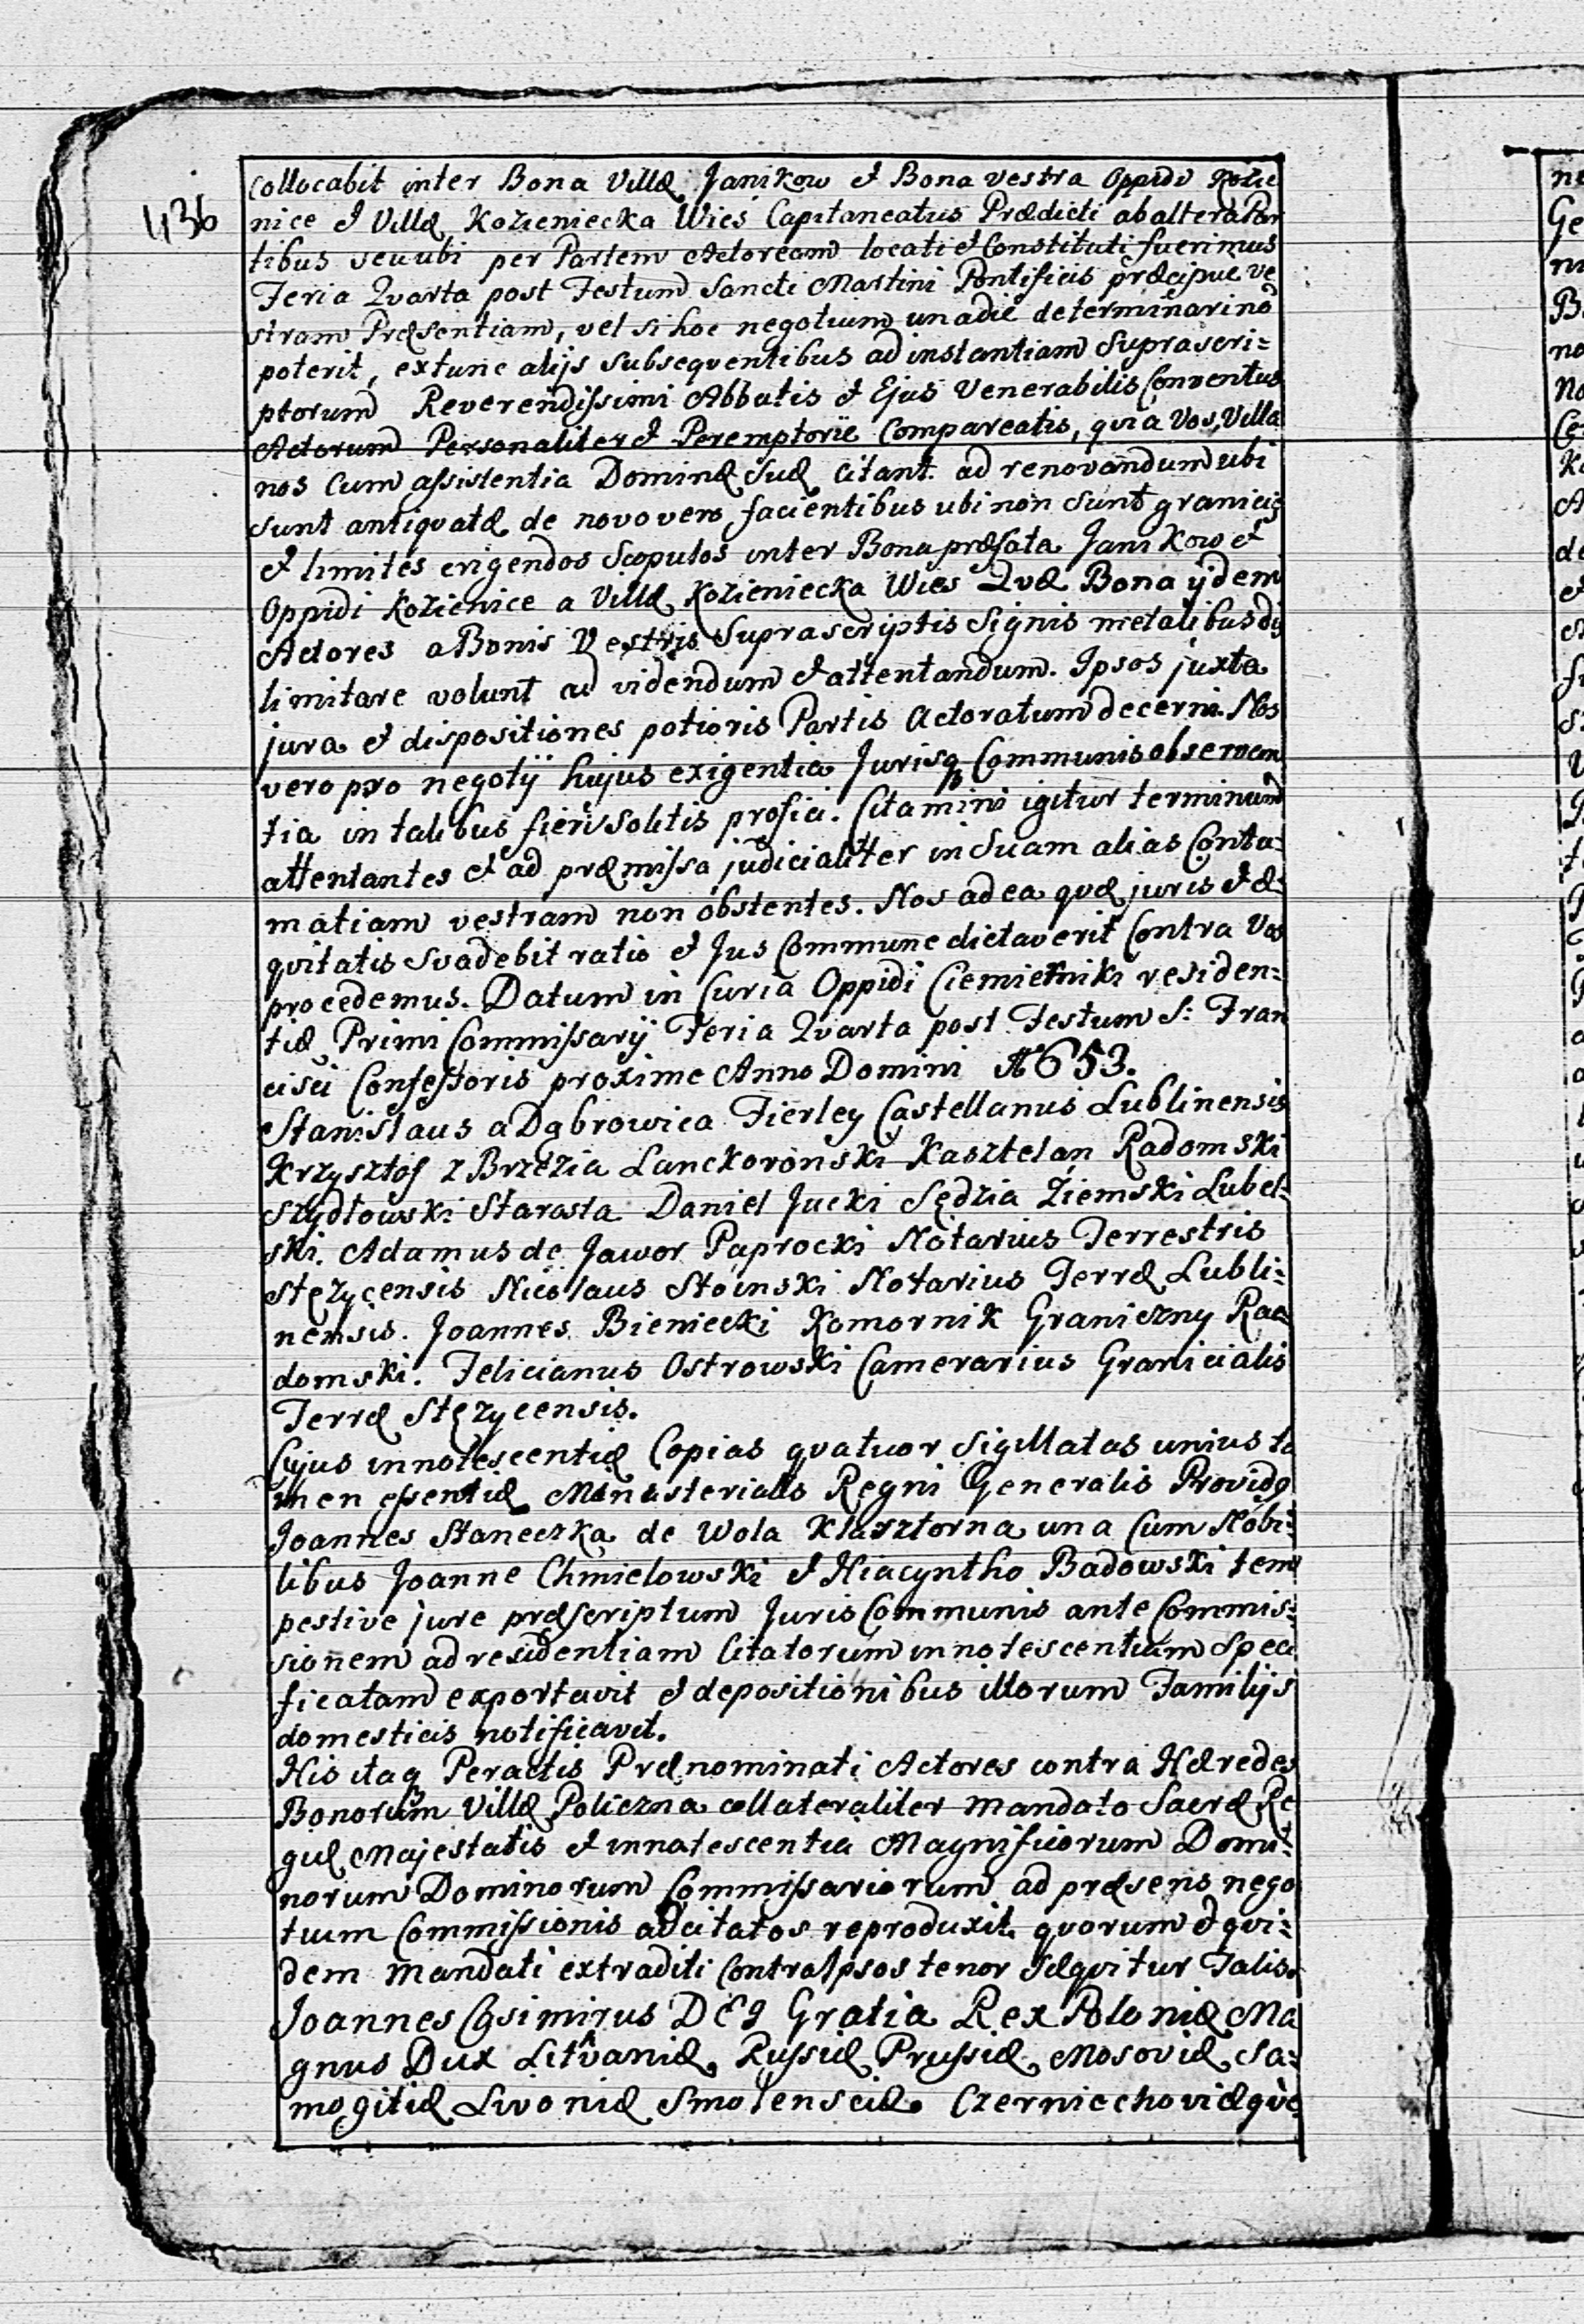 436
Collocabit inter Bona Villæ Janikow et Bona vestra Oppidi Kozie
nice et Villæ Kozieniecka Wies Capitaneatus Prædicti ab altera Par
tibus seu ubi per Partem Actoream locati et Constituti fuerimus
Feria Qvarta post Festum Sancti Martini Pontificis præcipue ve
stram Præsentiam, vel si hoc negotium una die determinari nō
poterit, extunc alijs subseqventibus ad instantiam Suprascri=
ptorum Reverendissimi Abbatis et Ejus Venerabilis Conventus
Actorum Personaliter et Peremptorie Compareatis, qvia Vos, Villa
nos Cum assistentia Dominæ Suæ citant. ad renovandum ubi
sunt antiqvatæ de novo vero facientibus ubi non sunt granicis
et limites erigendos Scopulos inter Bona præfata Janikow et
Oppidi Kozienice a Villæ Kozieniecka Wies Qvæ Bona ijdem
Actores a Bonis Vestris Suprascriptis Signis metalibus di
limitare volunt ad videndum et attentandum. Ipsos juxta
jura et dispositiones potioris Partis Actoratum decerni. Nos
vero pro negotij hujus exigentia Jurisq Communis observan
tia in talibus fieri solitis profici. Citamini igitur terminum
attentantes et ad præmissa judicialitter in Suam alias Contu=
matiam vestram non obstentes. Nos ad ea qvæ juris et æ=
qvitatis Svadebit ratio et Jus Commune dictaverit Contra Vos
procedemus. Datum in Curia Oppidi Ciemierniki residen=
tiæ Primi Commissarij Feria Qvarta post Festum S: Fran
cisci Confessoris proxime Anno Domini 1653.
Stanislaus a Dąbrowica Fierley Castellanus Lublinensis
Krzysztof z Brzezia Lanckoronski Kasztelan Radomski
Szydłowski Starosta Daniel Jucki Sędzia Ziemski Lubel=
ski. Adamus de Jawor Paprocki Notarius Terrestris
Stęzycensis Nicolaus Stoinski Notarius Terræ Lubli=
nensis. Joannes Bieniecki Komornik Graniczny Ra=
domski. Felicianus Ostrowski Camerarius Granicialis
Terræ Stęzycensis.
Cujus innotescentiæ Copias qvatuor Sigillatas unius ta
men essentiæ Ministerialis Regni Generalis Providq
Joannes Staneczka de Wola Klasztorna una Cum Nobi=
libus Joanne Chmielowski et Hiacyntho Badowski tem
pestive jure præscriptum Juris Communis ante Commis=
sionem ad residentiam Citatorum innotescentium Speci
ficatam exportavit et depositionibus illorum Familijs
domesticis notificavit.
His itaq Peractis Prænominati Actores contra Hæredes
Bonorum Villæ Policzna collateraliter mandato Sacræ Re
giæ Majestatis et innotescentia Magnificorum Domi=
norum Dominorum Commissariorum ad præsens nego
tium Commissionis adcitatos reproduxit qvorum et qvi=
dem mandati extraditi Contra Ipsos tenor Seqvitur Talis.
Joannes Casimirus DEI Gratia Rex Poloniæ Ma
gnus Dux Litvaniæ, Russiæ Prussiæ Mosoviæ Sa=
mogitiæ Livoniæ Smolensciæ Czerniechoviæqve